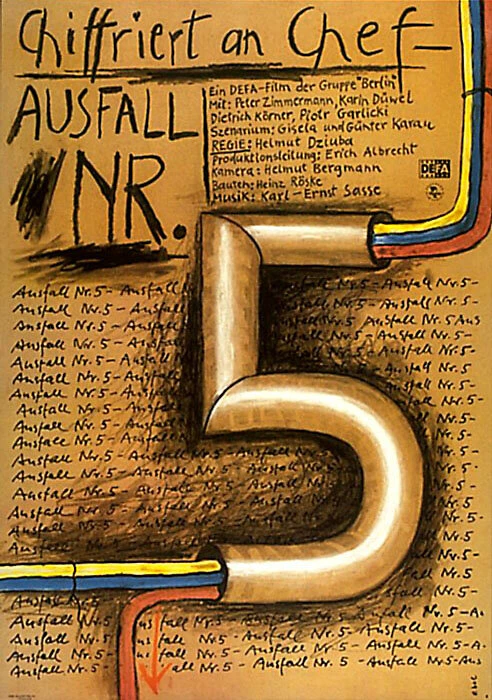 Chiffriert an Chef-
AUSFALL
NR.
5
Ein DEFA-Film der Gruppe "Berlin"
Mit: Peter Zimmermann, Karin Düwel
Dietrich Körner, Piotr Garlicki
Szenarium: Gisela und Günter Karau
REGIE: Helmut Dziuba
Produktionsleitung: Erich Albrecht
Kamera: Helmut Bergmann
Bauten: Heinz Röske
Musik: Karl-Ernst Sasse
DEFA
Ausfall Nr. 5 - Ausfall Nr. 5 -
Ausfall Nr. 5 - Ausfall Nr. 5 -
Ausfall Nr. 5 - Ausfall Nr. 5 Aus
Ausfall Nr. 5 - Ausfall Nr. 5 -
Ausfall Nr. 5 - Ausfall Nr. 5 -
Ausfall Nr. 5 - Ausfall Nr. 5
Ausfall Nr. 5 - Ausfall Nr. 5 -
Ausfall Nr. 5 - Nr. 5 -
Ausfall Nr. 5 - Nr. 5 -
Ausfall Nr. 5 - Ausfall Nr. 5 - Ausfall Nr. 5 -
Ausfall Nr. 5 - Ausfall Nr. 5 - Ausfall Nr. 5
Ausfall Nr. 5 - Ausfall Nr. 5 - Ausfall Nr. 5
Ausfall Nr. 5 - Ausfall Nr. 5 - Ausfall Nr. 5 -
Ausfall Nr. 5 - Ausfall Nr. 5
Ausfall Nr. 5
Ausfall Nr. 5 fall Nr. 5
Ausfall Nr. 5 Ausfall Nr. 5 - A.
Ausfall Nr. 5 fall Nr. 5 - Ausfall Nr. 5 - Ausfall Nr. 5 -
Ausfall Nr. 5 - fall Nr. 5 - Ausfall Nr. 5 - Ausfall Nr. 5 - A.
Ausfall Nr. 5 - all Nr. 5 - Ausfall Nr. 5 - Ausfall Nr. 5 Aus